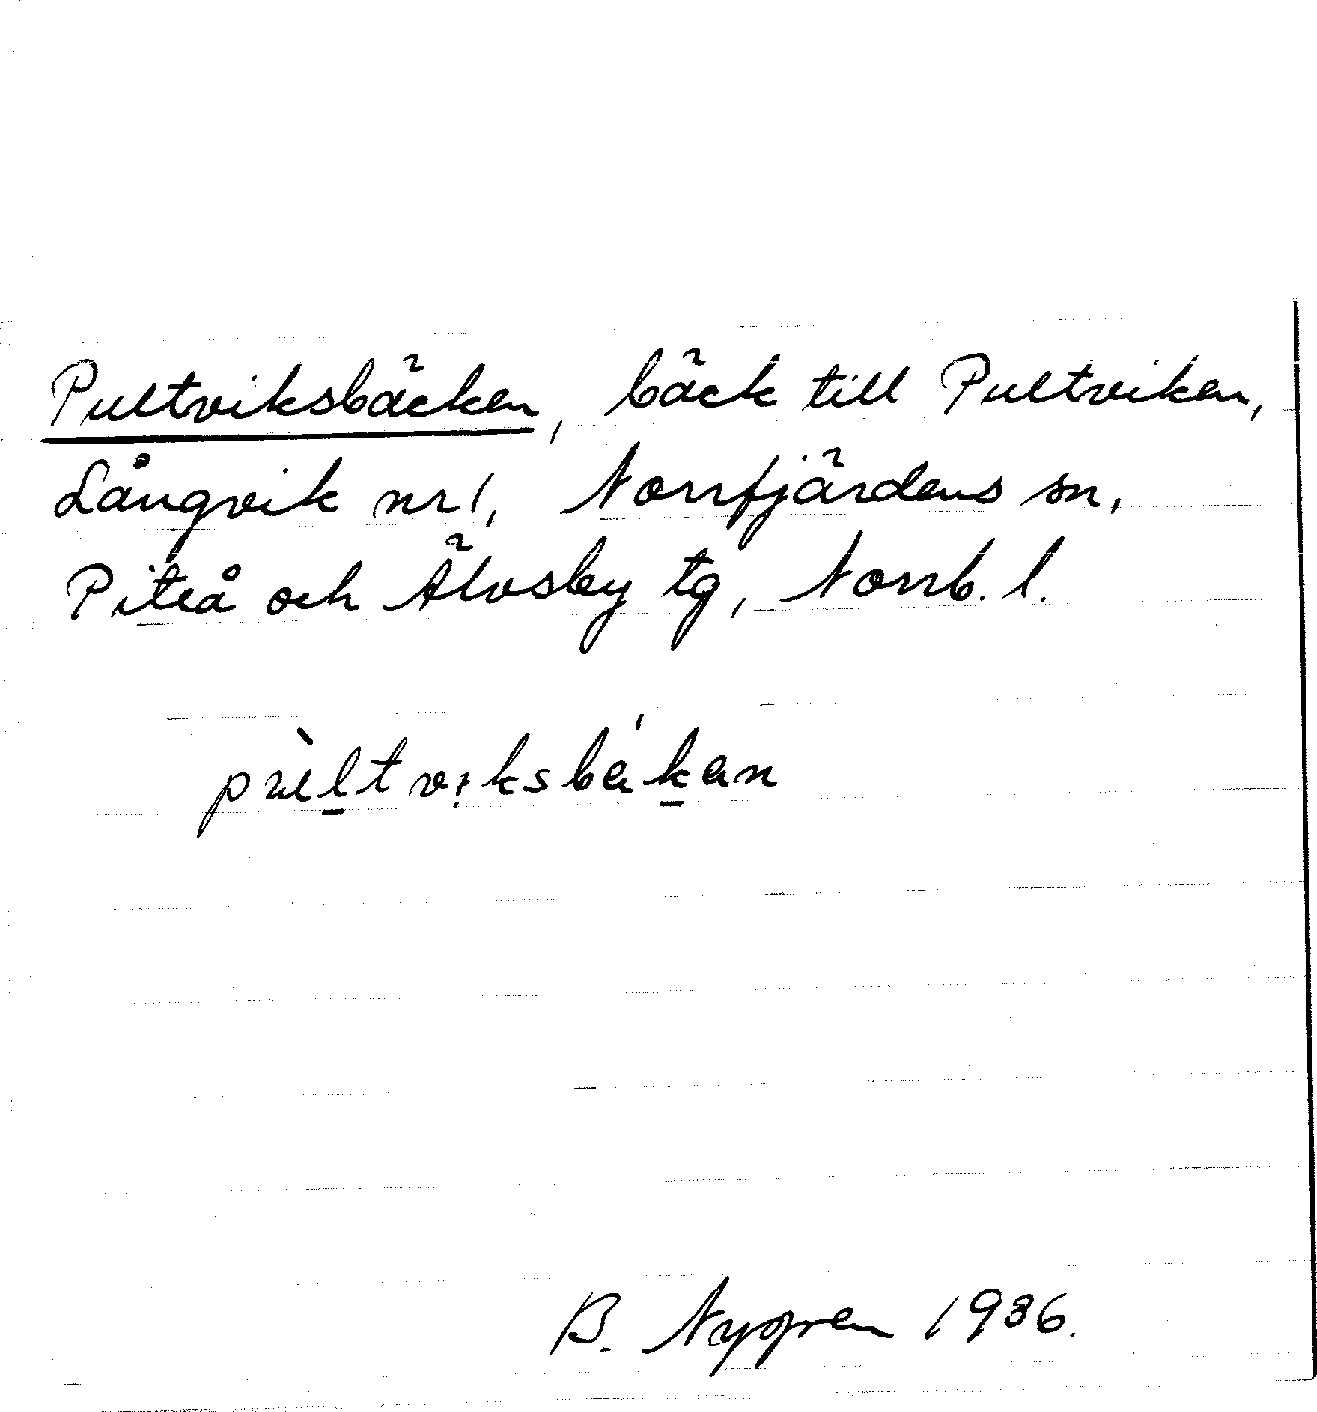 Pultviksbäcken, bäck till Pultviken,
Långvik nr 1, Norrfjärdens sn,
Piteå och Älvsby tg, Norrb. l.
pùltviksbákan
B. Nygren 1936.